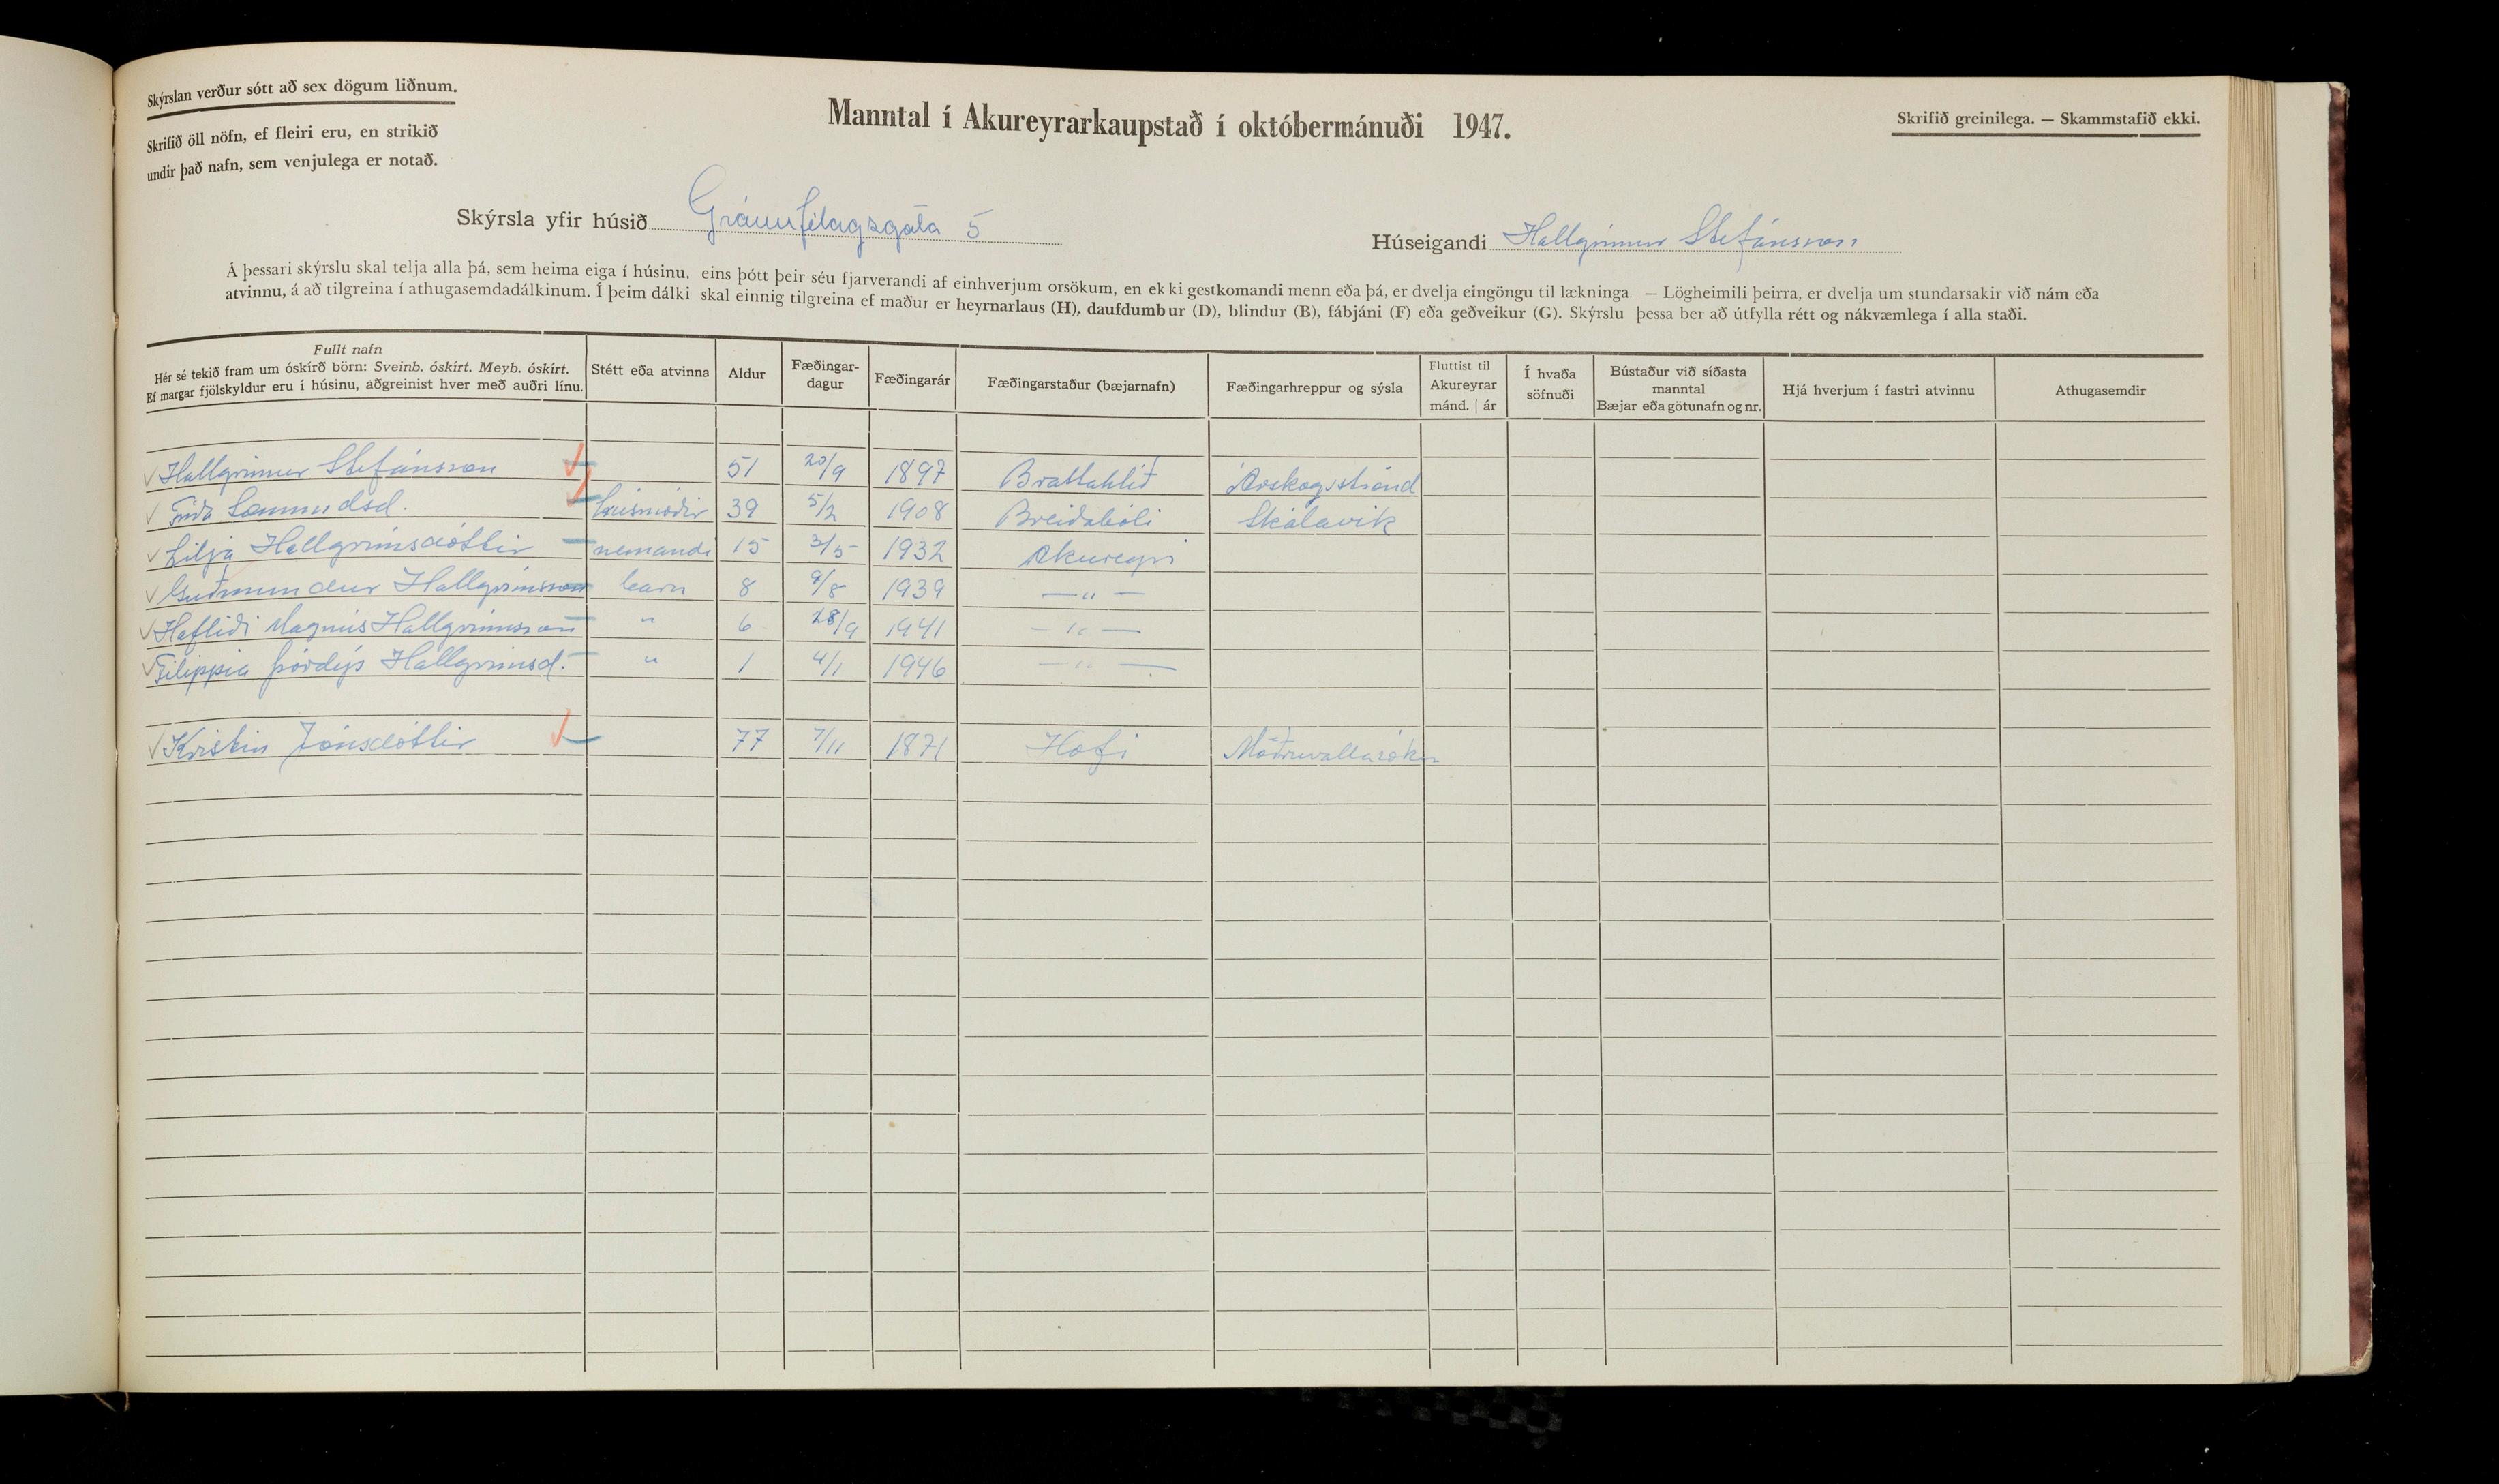 Skýrslan verður sótt að sex dögum liðnum.
Skrifið öll nöfn, ef fleiri eru, en strikið
undir það nafn, sem venjulega er notað.
Manntal í Akureyrarkaupstað í októbermánuði 1947.
Skrifið greinilega. — Skammstafið ekki.
Skýrsla yfir húsið Gránufélagsgata 5
Húseigandi Hallgrímur Stefánsson
Á þessari skýrslu skal telja alla þá, sem heima eiga í húsinu, eins þótt þeir séu fjarverandi af einhverjum orsökum, en ekki gestkomandi menn eða þá, er dvelja eingöngu til lækninga. — Lögheimili þeirra, er dvelja um stundarsakir við nám eða
atvinnu, á að tilgreina í athugasemdadálkinum. Í þeim dálki skal einnig tilgreina ef maður er heyrnarlaus (H), daufdumbur (D), blindur (B), fábjáni (F) eða geðveikur (G). Skýrslu þessa ber að útfylla rétt og nákvæmlega í alla staði.
Fullt nafn
Hér sé tekið fram um óskírð börn: Sveinb. óskírt. Meyb. óskírt.
Ef margar fjölskyldur eru í húsinu, aðgreinist hver með auðri línu.
Stétt eða atvinna
Aldur
Fæðingar-
dagur
Fæðingarár
Fæðingarstaður (bæjarnafn)
Fæðingarhreppur og sýsla
Fluttist til
Akureyrar
mánd. | ár
Í hvaða
söfnuði
Bústaður við síðasta
manntal
Bæjar eða götunafn og nr.
Hjá hverjum í fastri atvinnu
Athugasemdir
Hallgrímur Stefánsson 51 20/9 1897 Brattahlíð Árskógsströnd
Sæmundsd. húsmóðir 39 5/2 1908 Breiðabóli Skálavík
Lilja Hallgrímsdóttir nemandi 15 3/5 1932 Akureyri
Guðmundur Hallgrímsson barn 8 9/8 1939 — " —
Hafliði Magnús Hallgrímsson " 6 18/9 1941 — " —
Filippia Þórdýs Hallgrímsd. " 1 4/1 1946 — " —
Kristín Jónsdóttir 77 7/11 1871 Hofi Möðruvallasókn